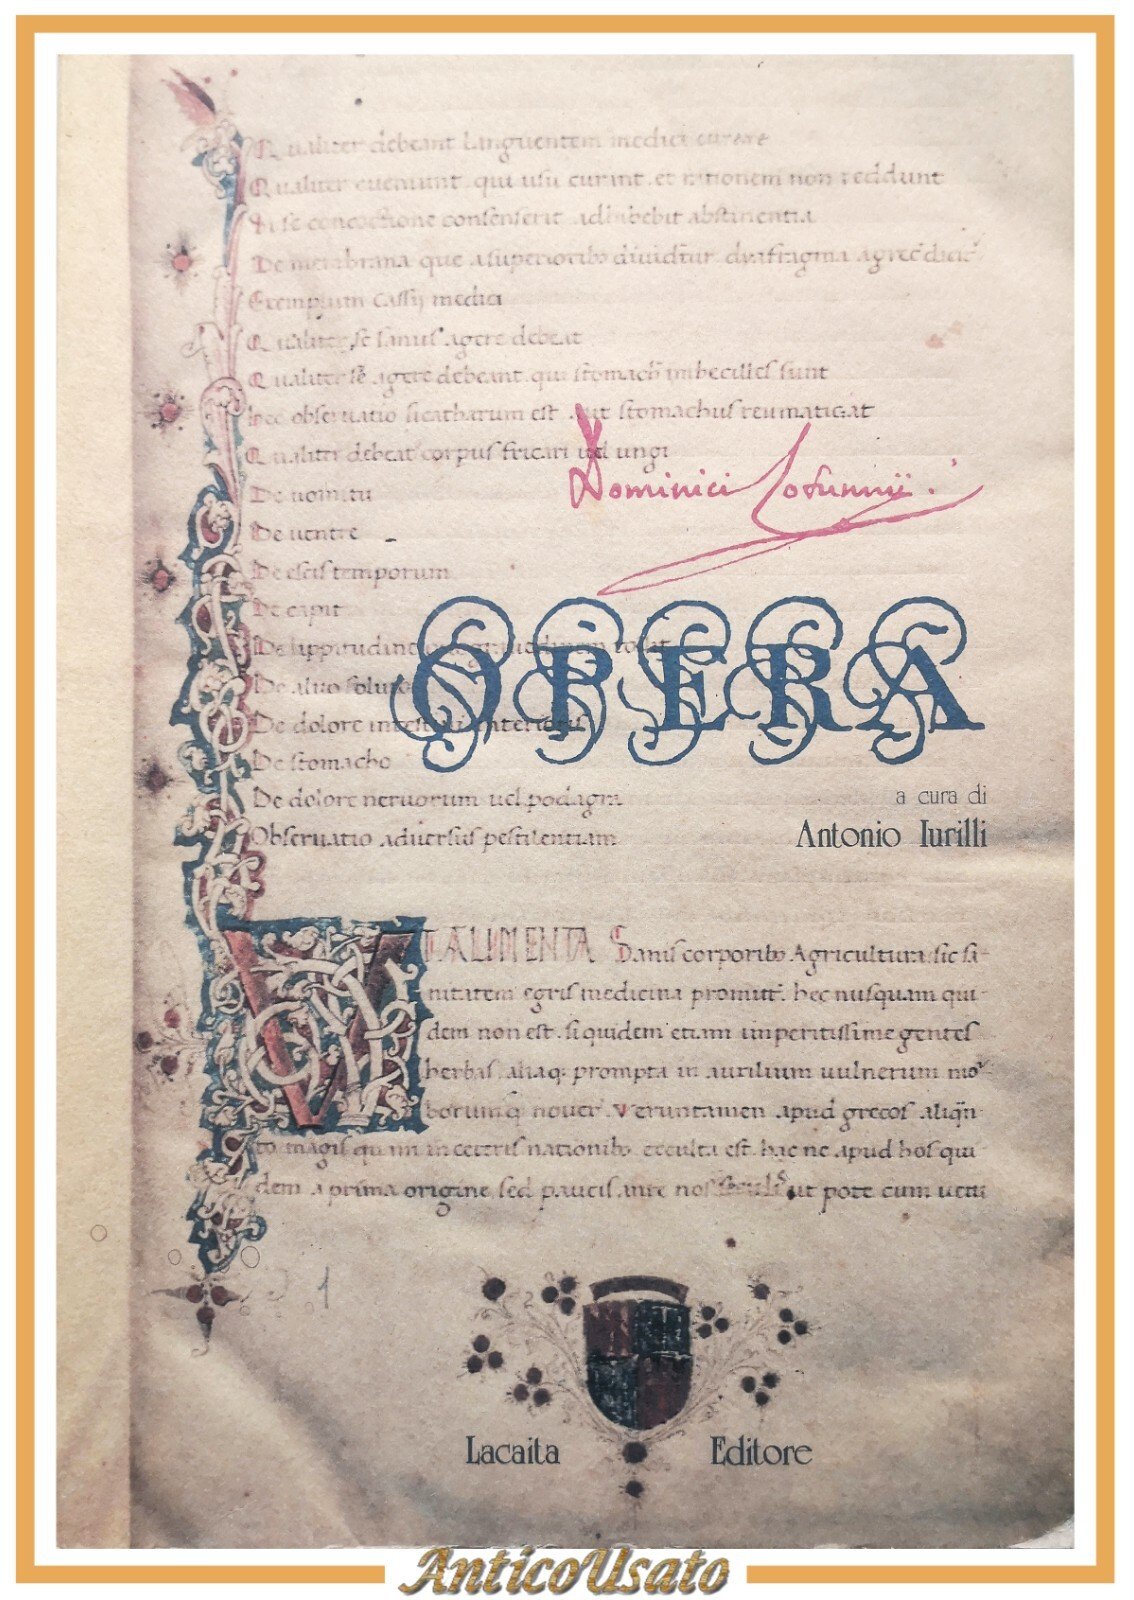 Qualiter debeant languentem medici curare
Qualiter eveniunt qui usu curint et rationem non reddunt
Si se concoctione consenserit adhibebit abstinentia
De membrana que a superioribo dividitur dyafragma a grec dicit
Exemplum Cassij medici
Qualiter se sanus agere debeat
Qualiter se agere debeant qui stomacho imbecilles sunt
hec observatio sicatharum est aut stomachus reumatizat
Qualiter debeat corpus fricari uel ungi
Dominici Cotunnii.
De uomitu
De uentre
De escis temporum
De capit
OPERA
De lippitudine
De aluo soluto
De dolore intestini interioris
De stomacho
De dolore neruorum uel podagra
a cura di
Obseruatio aduersus pestilentiam
Antonio Iurilli
VT ALIMENTA Sanis corporibo Agricultura: sic sa-
nitatem egris medicina promitt. hec nusquam qui-
dem non est. siquidem etiam imperitissime gentes
herbas aliaq; prompta in auxilium uulnerum mor-
borumq nouer. Veruntamen apud grecos aliqn-
to magis quam in ceteris nationibo exculta est. hac ne apud hos qui-
dem a prima origine sed paucis ante nos seculis ut pote cum uetu
1
Lacaita Editore
AnticoUsato